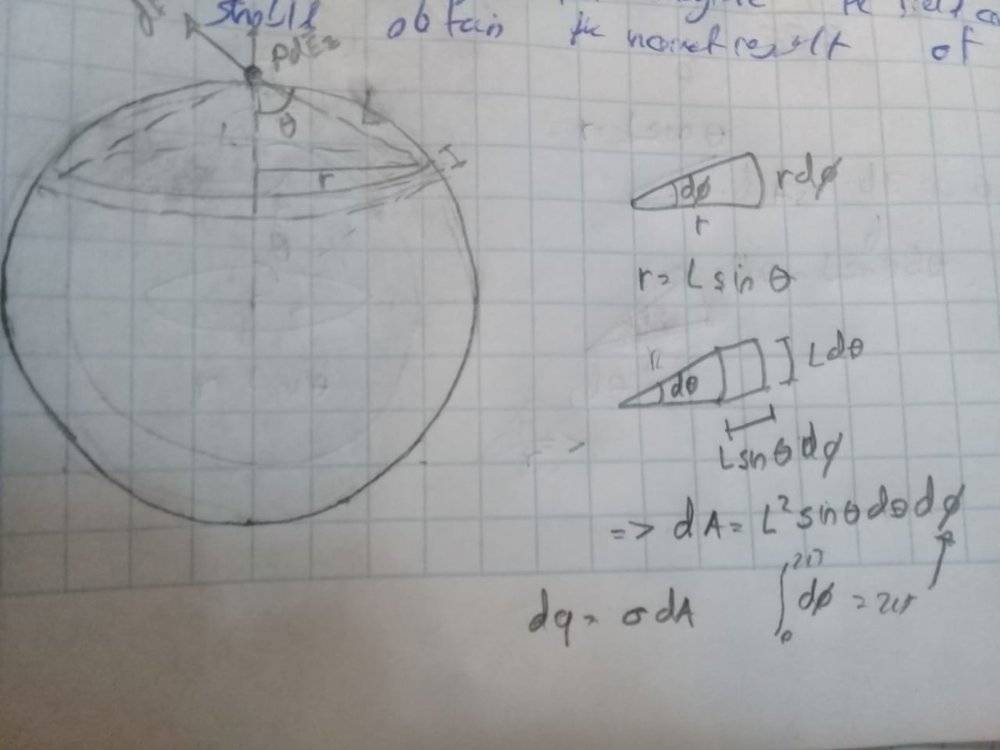 should obtain the normal result of
PdEz
θ
L
r
dφ rdφ
r
r = L sin θ
dθ ] Ldθ
L sin θ dφ
=> dA = L² sin θ dθ dφ
dq = σ dA ∫₀²π dφ = 2π